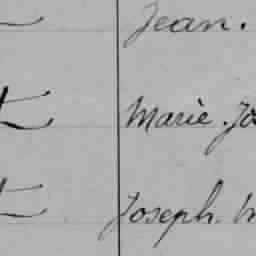 Jean.
Marie. Jo
Joseph.